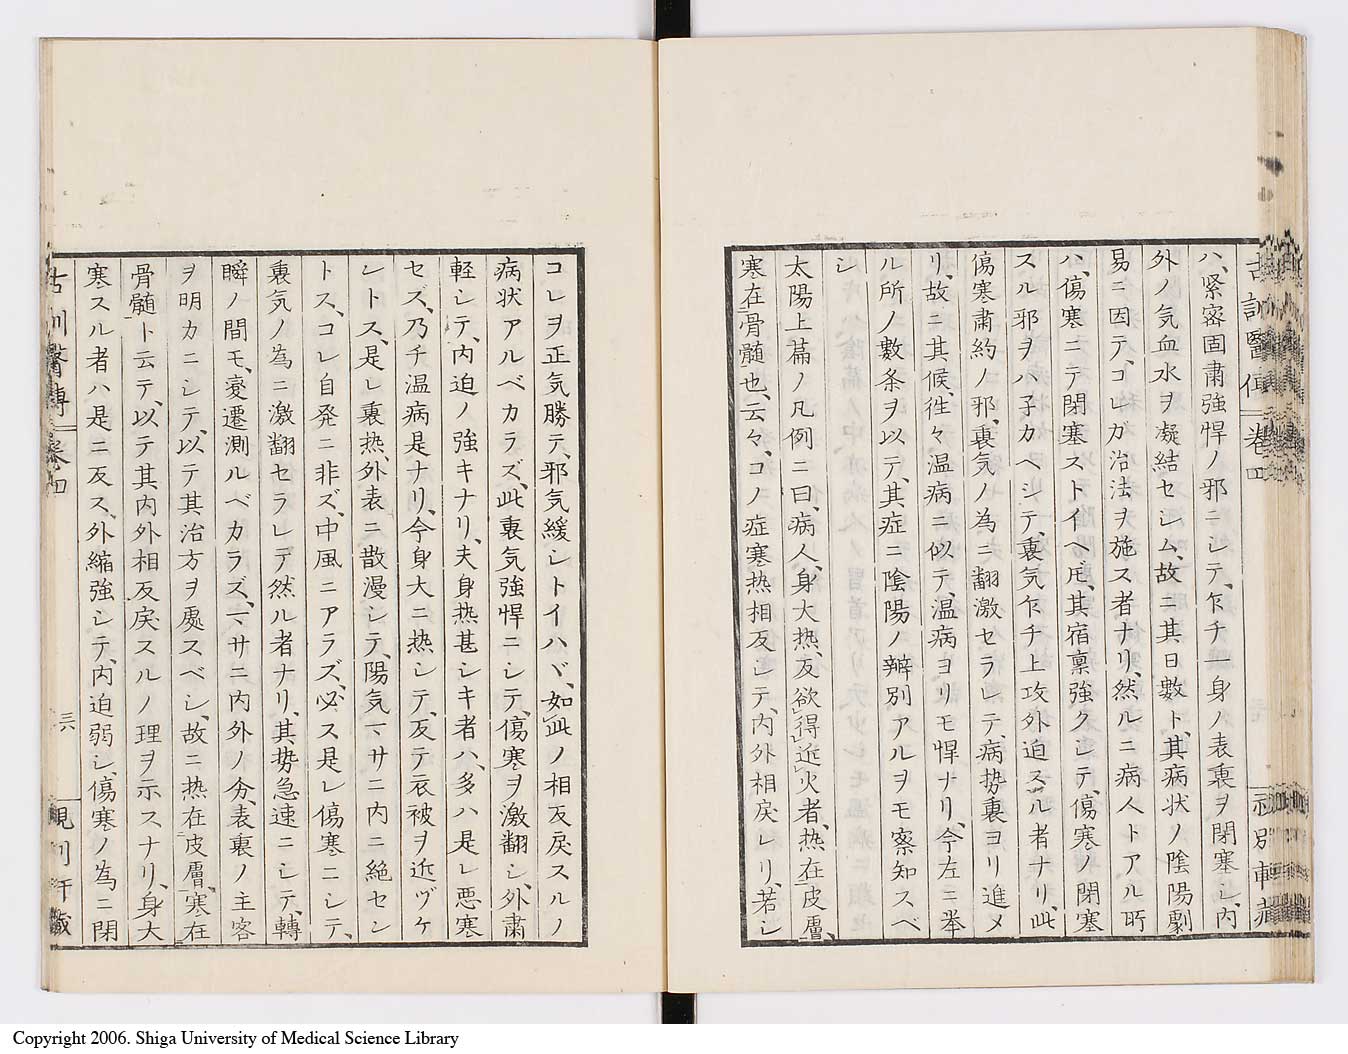 ハ、緊密固肅強悍ノ邪ニシテ、乍チ一身ノ表裏ヲ閉塞シ、内
外ノ気血水ヲ凝結セシム、故ニ其日數ト、其病状ノ陰陽劇
易ニ因テ、コレカ治法ヲ施ス者ナリ、然ルニ病人トアル所
ハ、傷寒ニテ閉塞ストイヘ𪜈、其宿稟強クシテ、傷寒ノ閉塞
スル邪ヲハ子カヘシテ、裏気乍チ上攻外迫スル者ナリ、此
傷寒肅約ノ邪、裏気ノ為ニ翻激セラレテ、病势裏ヨリ進メ
リ、故ニ其候、徃々温病ニ似テ、温病ヨリモ悍ナリ、今左ニ挙
ル所ノ數条ヲ以テ、其症ニ陰陽ノ辨別アルヲモ察知スベ
シ
太陽上篇ノ凡例ニ曰、病人、身大热、反欲得近火者、热在皮膚、
寒在骨髄也、云々、コノ症寒热相反シテ、内外相戾レリ、若シ
コレヲ正気勝テ、邪気緩シトイハヾ、如此ノ相反戾スルノ
病状アルベカラズ、此裏気強悍ニシテ、傷寒ヲ激翻シ、外肅
軽シテ、内迫ノ強キナリ、夫身热甚シキ者ハ、多ハ是レ悪寒
セズ、乃チ温病是ナリ、今身大ニ热シテ、反テ衣被ヲ近ヅケ
ントス、是レ裏热、外表ニ散漫シテ、陽気一サニ内ニ絶セン
トス、コレ自発ニ非ズ、中風ニアラズ、必ス是レ傷寒ニシテ、
裏気ノ為ニ激翻セラレテ然ル者ナリ、其势急速ニシテ、轉
瞬ノ間モ、変遷測ルベカラズ、一サニ内外ノ分、表裏ノ主客
ヲ明カニシテ、以テ其治方ヲ處スベシ、故ニ热在皮膚、寒在
骨髄ト云テ、以テ其内外相反戾スルノ理ヲ示スナリ、身大
寒スル者ハ是ニ反ス、外縮強シテ、内迫弱シ、傷寒ノ為ニ閉
古訓醫傳 巻四
三六
Copyright 2006. Shiga University of Medical Science Library